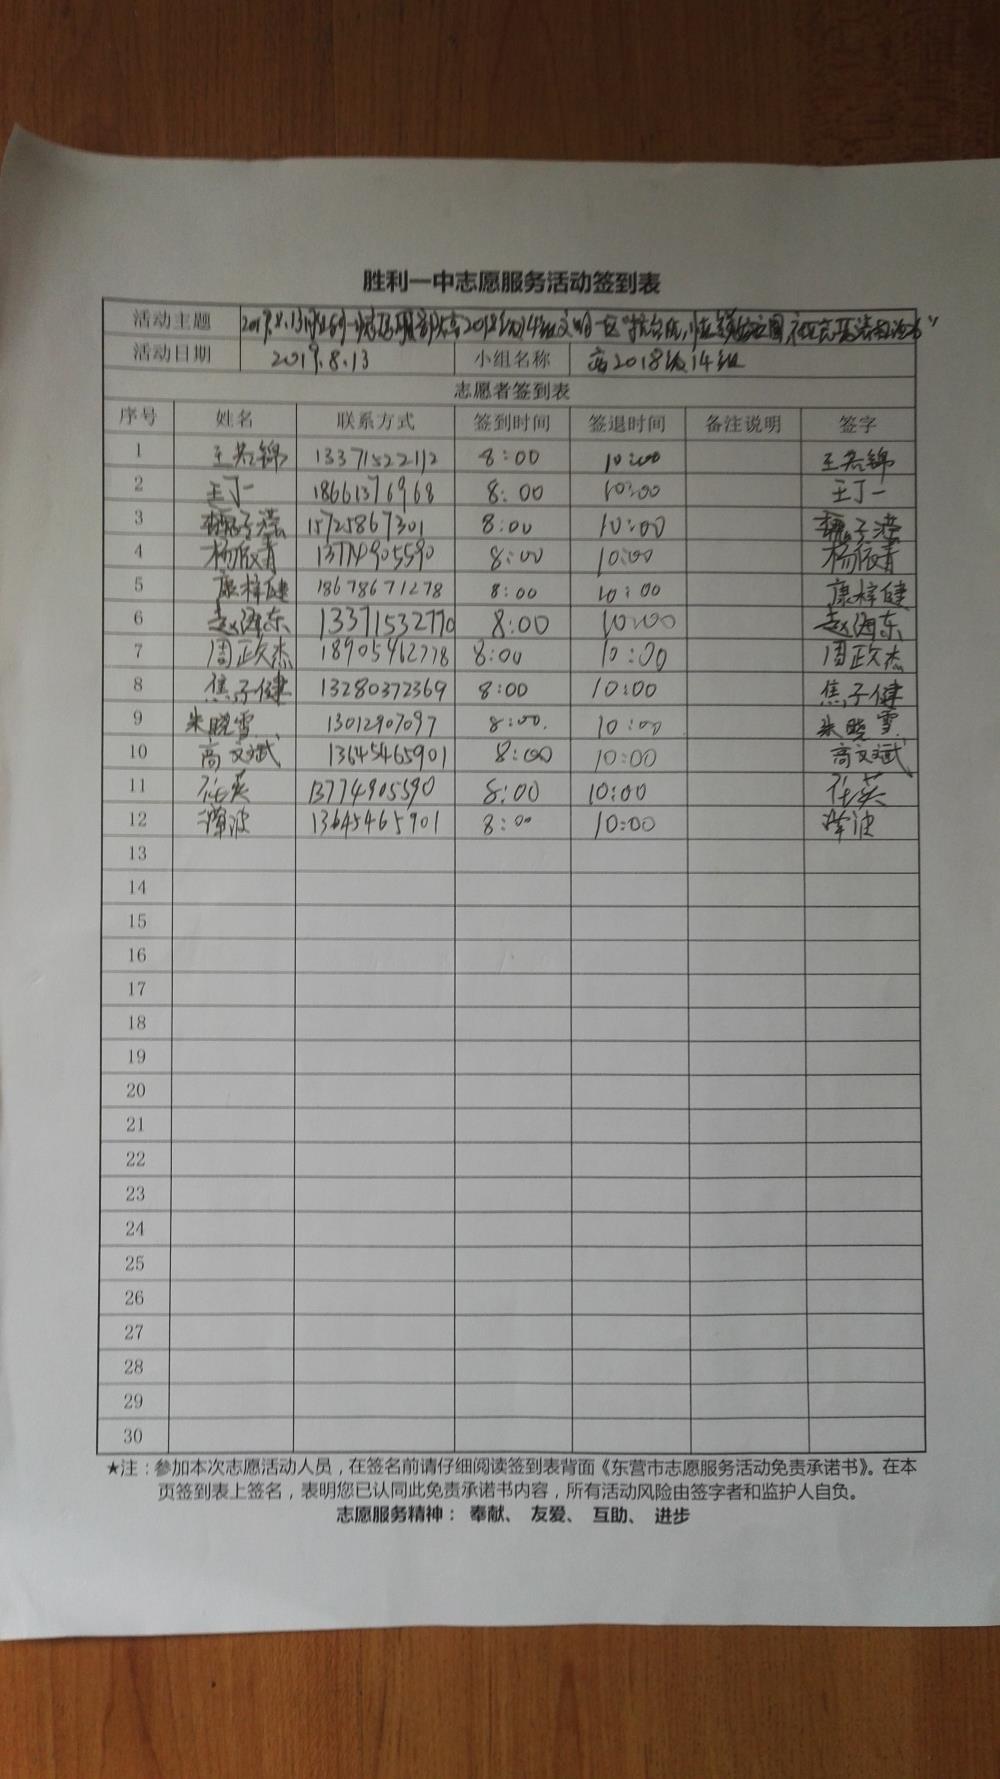 胜利一中志愿服务活动签到表
活动主题 2019.8.13 志愿服务队高2018级14组文明一区"抗台风,
活动日期 2019.8.13 小组名称 高2018级14组
志愿者签到表
序号 姓名 联系方式 签到时间 签退时间 备注说明 签字
1 王若锦 13371522112 8:00 10:00 王若锦
2 王丁一 18661376968 8:00 10:00 王丁一
3 15725867301 8:00 10:00
4 杨依青 13774905590 8:00 10:00 杨依青
5 康梓健 18678671278 8:00 10:00 康梓健
6 赵海东 13371532770 8:00 10:00 赵海东
7 周政杰 18905462778 8:00 10:00 周政杰
8 焦子健 13280372369 8:00 10:00 焦子健
9 朱晓雪 13012907097 8:00 10:00 朱晓雪
10 高文斌 13645465901 8:00 10:00 高文斌
11 任英 13774905590 8:00 10:00 任英
12 13645465901 8:00 10:00
13
14
15
16
17
18
19
20
21
22
23
24
25
26
27
28
29
30
★注：参加本次志愿活动人员，在签名前请仔细阅读签到表背面《东营市志愿服务活动免责承诺书》。在本
页签到表上签名，表明您已认同此免责承诺书内容，所有活动风险由签字者和监护人自负。
志愿服务精神： 奉献、 友爱、 互助、 进步